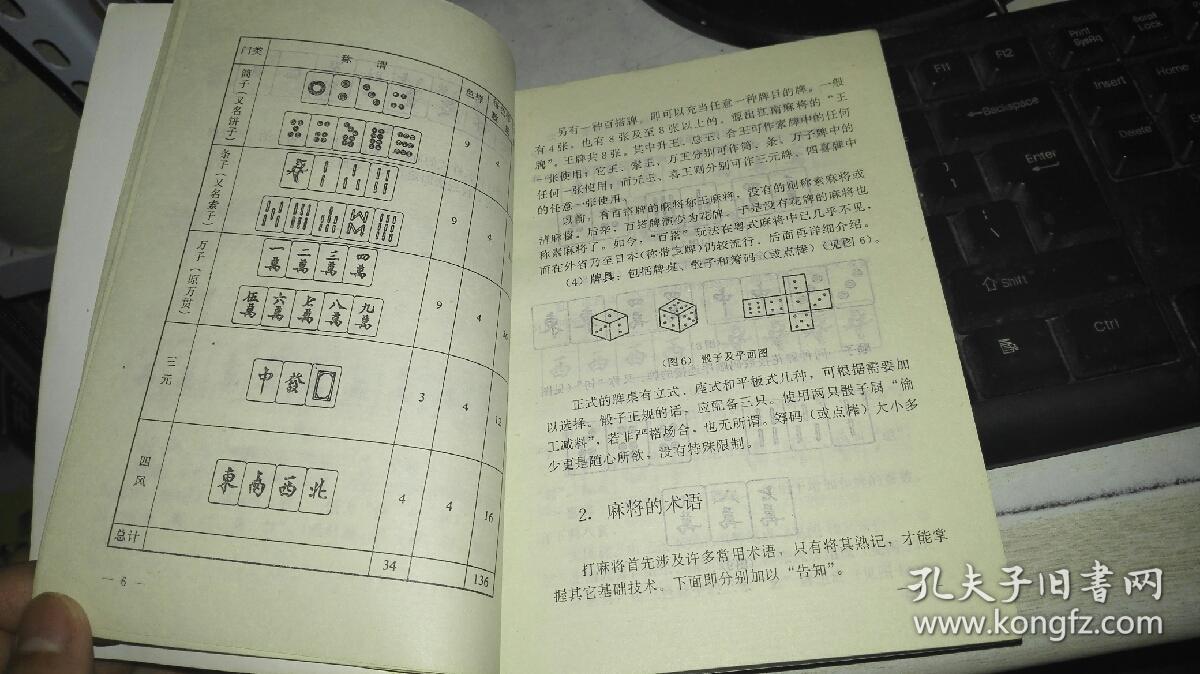 门类
称谓
色样
筒子(又名饼子)
9
4
条子(又名索子)
9
4
万子(原万贯)
一萬 二萬 三萬 四萬
伍萬 六萬 七萬 八萬 九萬
9
4
三元
中 發
3
4
12
四风
東 南 西 北
4
4
16
总计
34
136
— 6 —
另有一种百搭牌,即可以充当任意一种牌目的牌。一般
有4张,也有8张及至8张以上的,源出江南麻将的“王
牌”。王牌共8张。其中升王、总王、合王可作素牌中的任何
一张使用;它王、索王、万王分别可作筒、条、万子牌中的
任何一张使用;而元王、喜王则分别可作三元牌、四喜牌中
的任意一张使用。
以前,有百搭牌的麻将称王麻将,没有的则称素麻将或
清麻将。后来,百搭牌演变为花牌,于是没有花牌的麻将也
称素麻将了。如今,“百搭”玩法在粤式麻将中已几乎不见,
而在外省乃至日本(称带宝牌)仍较流行,后面再详细介绍。
(4) 牌具:包括牌桌、骰子和筹码(或点棒)(见图6)。
(图6) 骰子及平画图
正式的牌桌有立式、座式和平板式几种,可根据需要加
以选择。骰子正规的话,应配备三只。使用两只骰子属“偷
工减料”,若非严格场合,也无所谓。筹码(或点棒)大小多
少更是随心所欲,没有特殊限制。
2. 麻将的术语
打麻将首先涉及许多常用术语,只有将其熟记,才能掌
握其它基础技术。下面即分别加以“告知”。
孔夫子旧书网
www.kongfz.com
F11
F12
Print
SysRq
Scroll
Lock
Backspace
Insert
Home
Delete
Enter
Shift
Ctrl